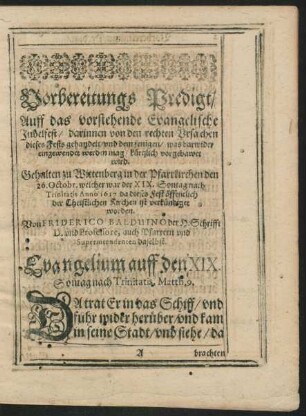 Vorbereitungs Predigt/
Auff das vorstehende Evangelische
Jubelfest/ darinnen von den rechten Vrsachen
dieses Fests gehandelt/ vnd dem jenigen/ was darwider
eingewendet werden mag/ kürtzlich vorgebawet
wird.
Gehalten zu Wittenberg in der Pfarrkirchen den
26. Octobr. welcher war der XIX. Sontag nach
Trinitatis Anno 1617 da dortzu Fest öffentlich
der Christlichen Kirchen ist verkündiget
worden.
Von FRIDERICO BALDUINO der H. Schrifft
D. vnd Professore, auch Pfarrern vnd
Superintendenten daselbst.
Evangelium auff den XIX.
Sontag nach Trinitatis, Matth. 9.
DA trat Er in das Schiff/ vnd
fuhr wider herüber/ vnd kam
in seine Stadt/ vnd siehe/ da
A brachten